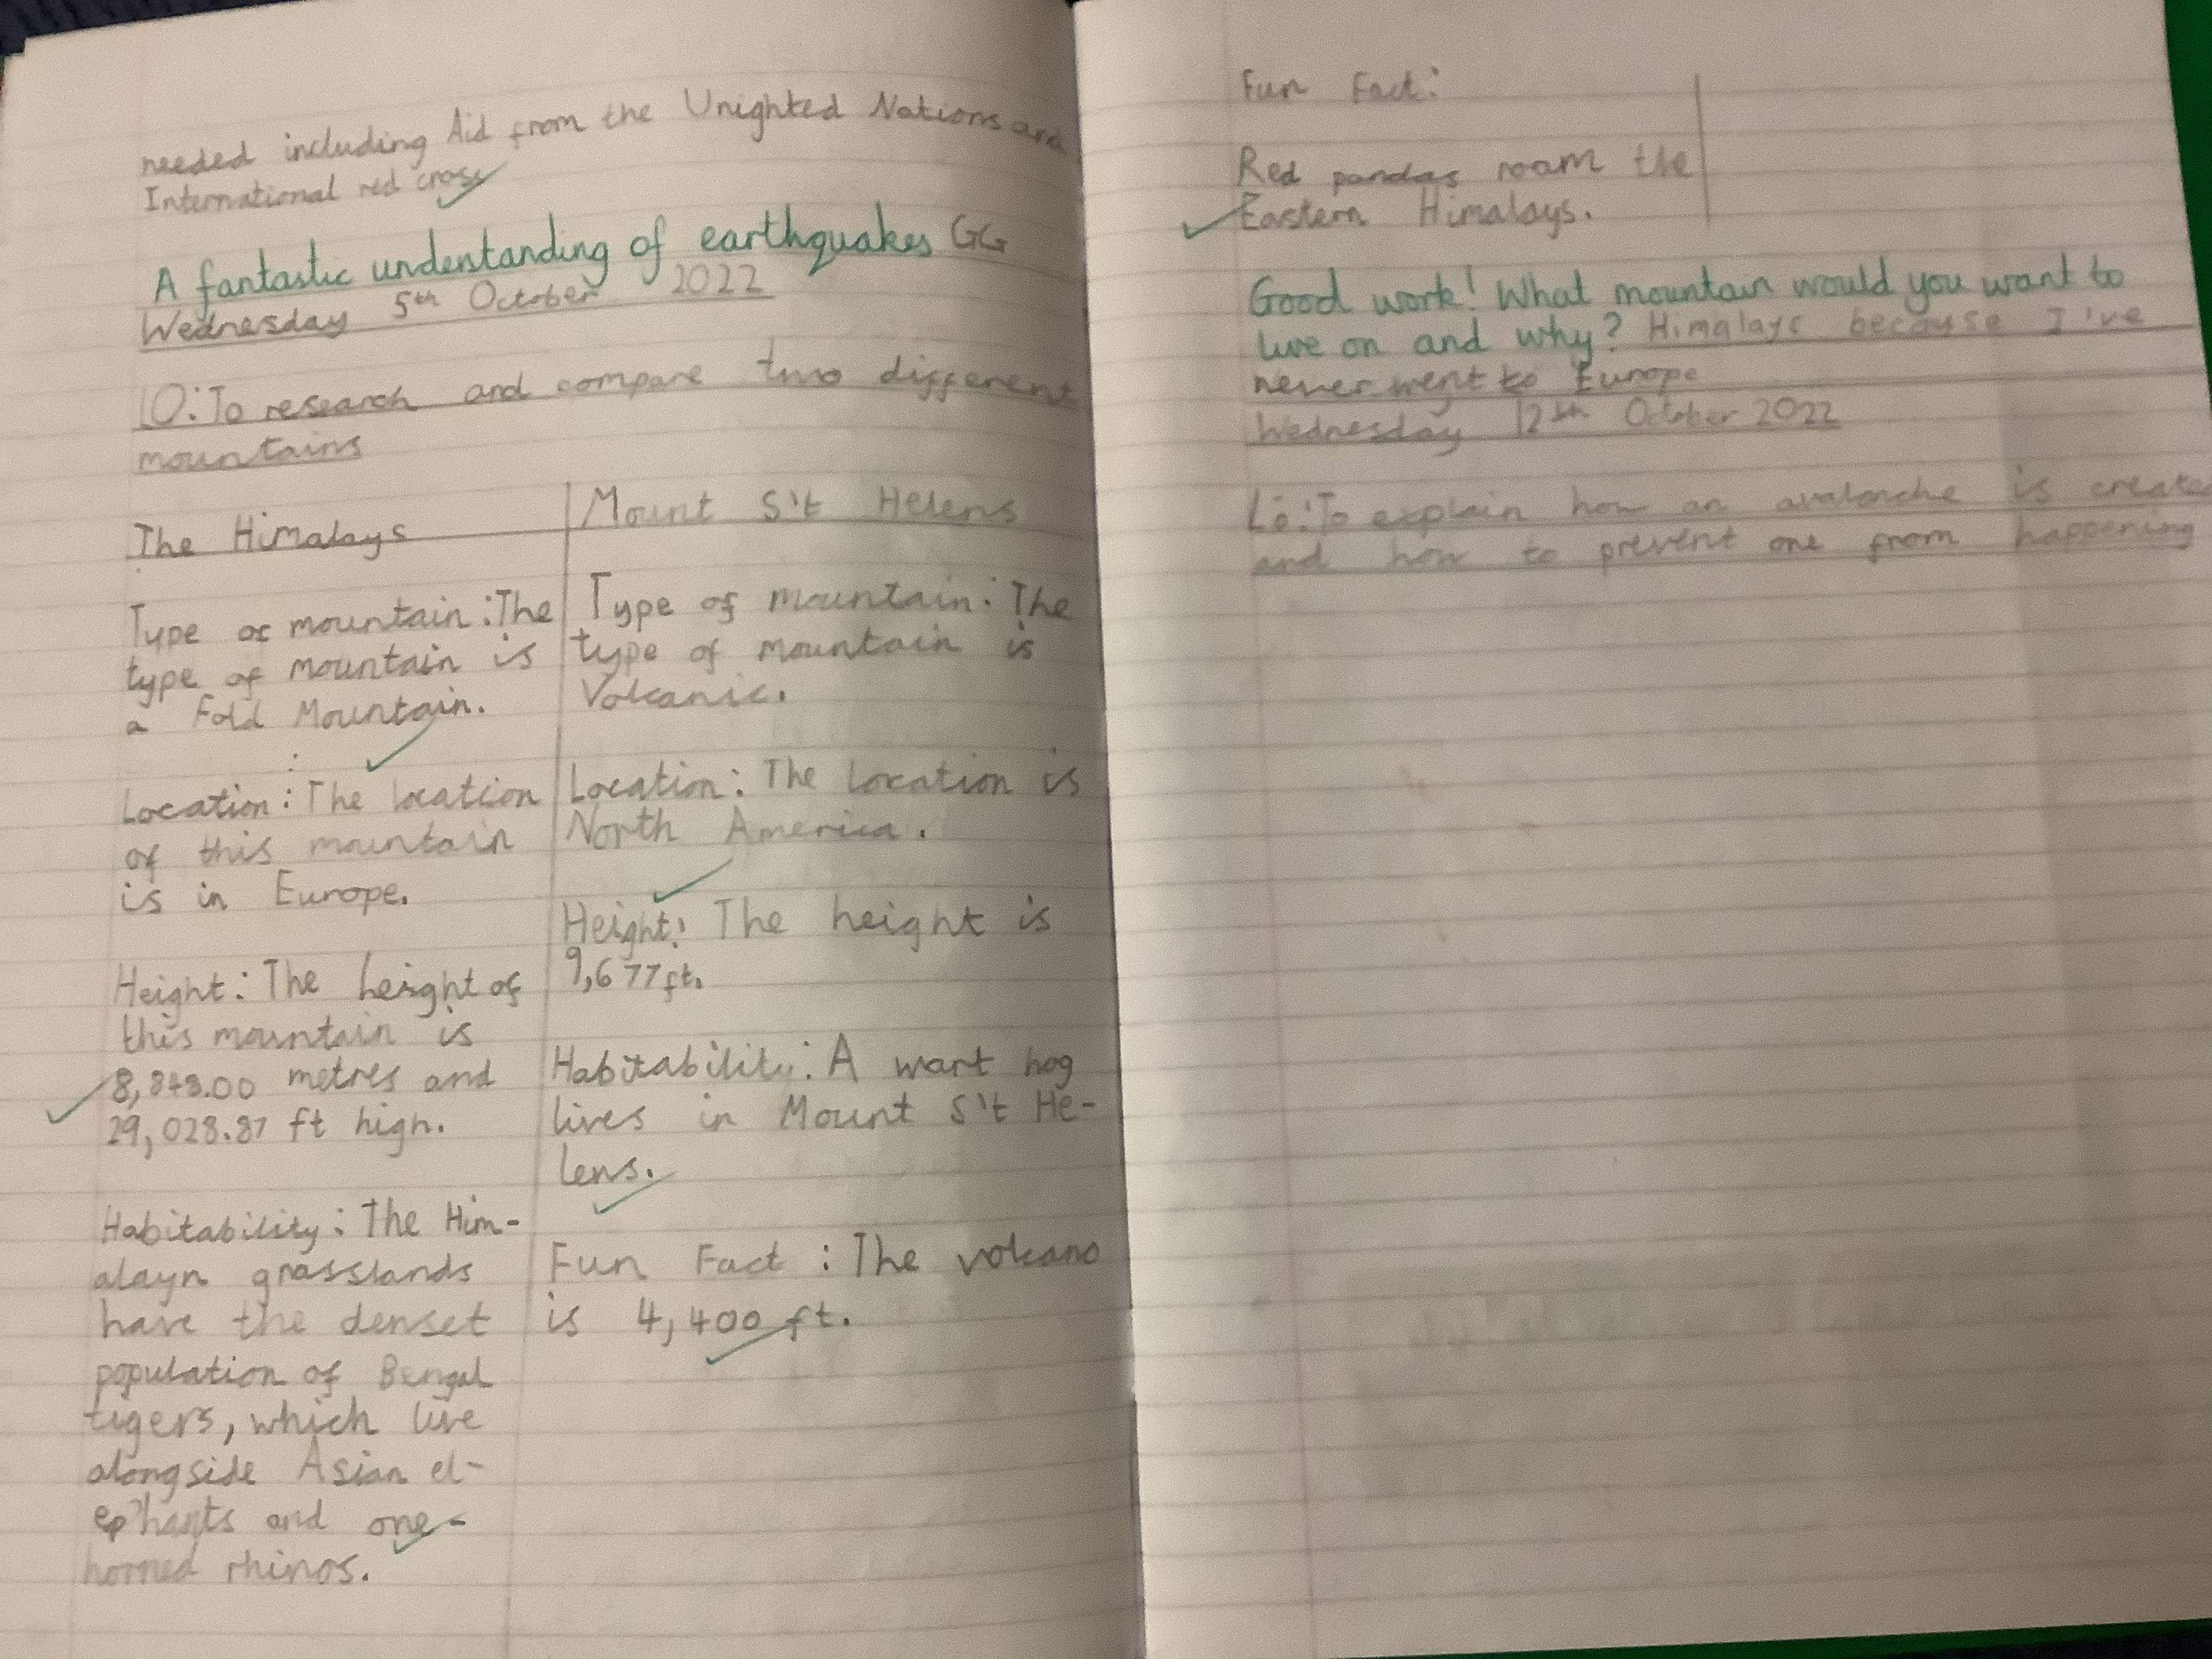 needed including Aid from the Unighted Nations and
International red cross
A fantastic understanding of earthquakes GG
Wednesday 5th October 2022
LO: To research and compare two different
mountains
The Himalays
Type of mountain: The
type of mountain is
a Fold Mountain.
Location: The location
of this mountain
is in Europe.
Height: The height of
this mountain is
8,848.00 metres and
29,028.87 ft high.
Habitability: The Him-
alayn grasslands
have the denset
population of Bengal
tigers, which live
alongside Asian el-
ephants and one-
horned rhinos.
Mount S't Helens
Type of mountain: The
type of mountain is
Volcanic.
Location: The location is
North America.
Height: The height is
9,677ft.
Habitability: A wart hog
lives in Mount S't He-
lens.
Fun Fact: The volcano
is 4,400 ft.
Fun Fact:
Red pandas roam the
Eastern Himalays.
Good work! What mountain would you want to
live on and why? Himalays because I've
never went to Europe
Wednesday 12th October 2022
Lo: To explain how an avalanche is created
and how to prevent one from happening